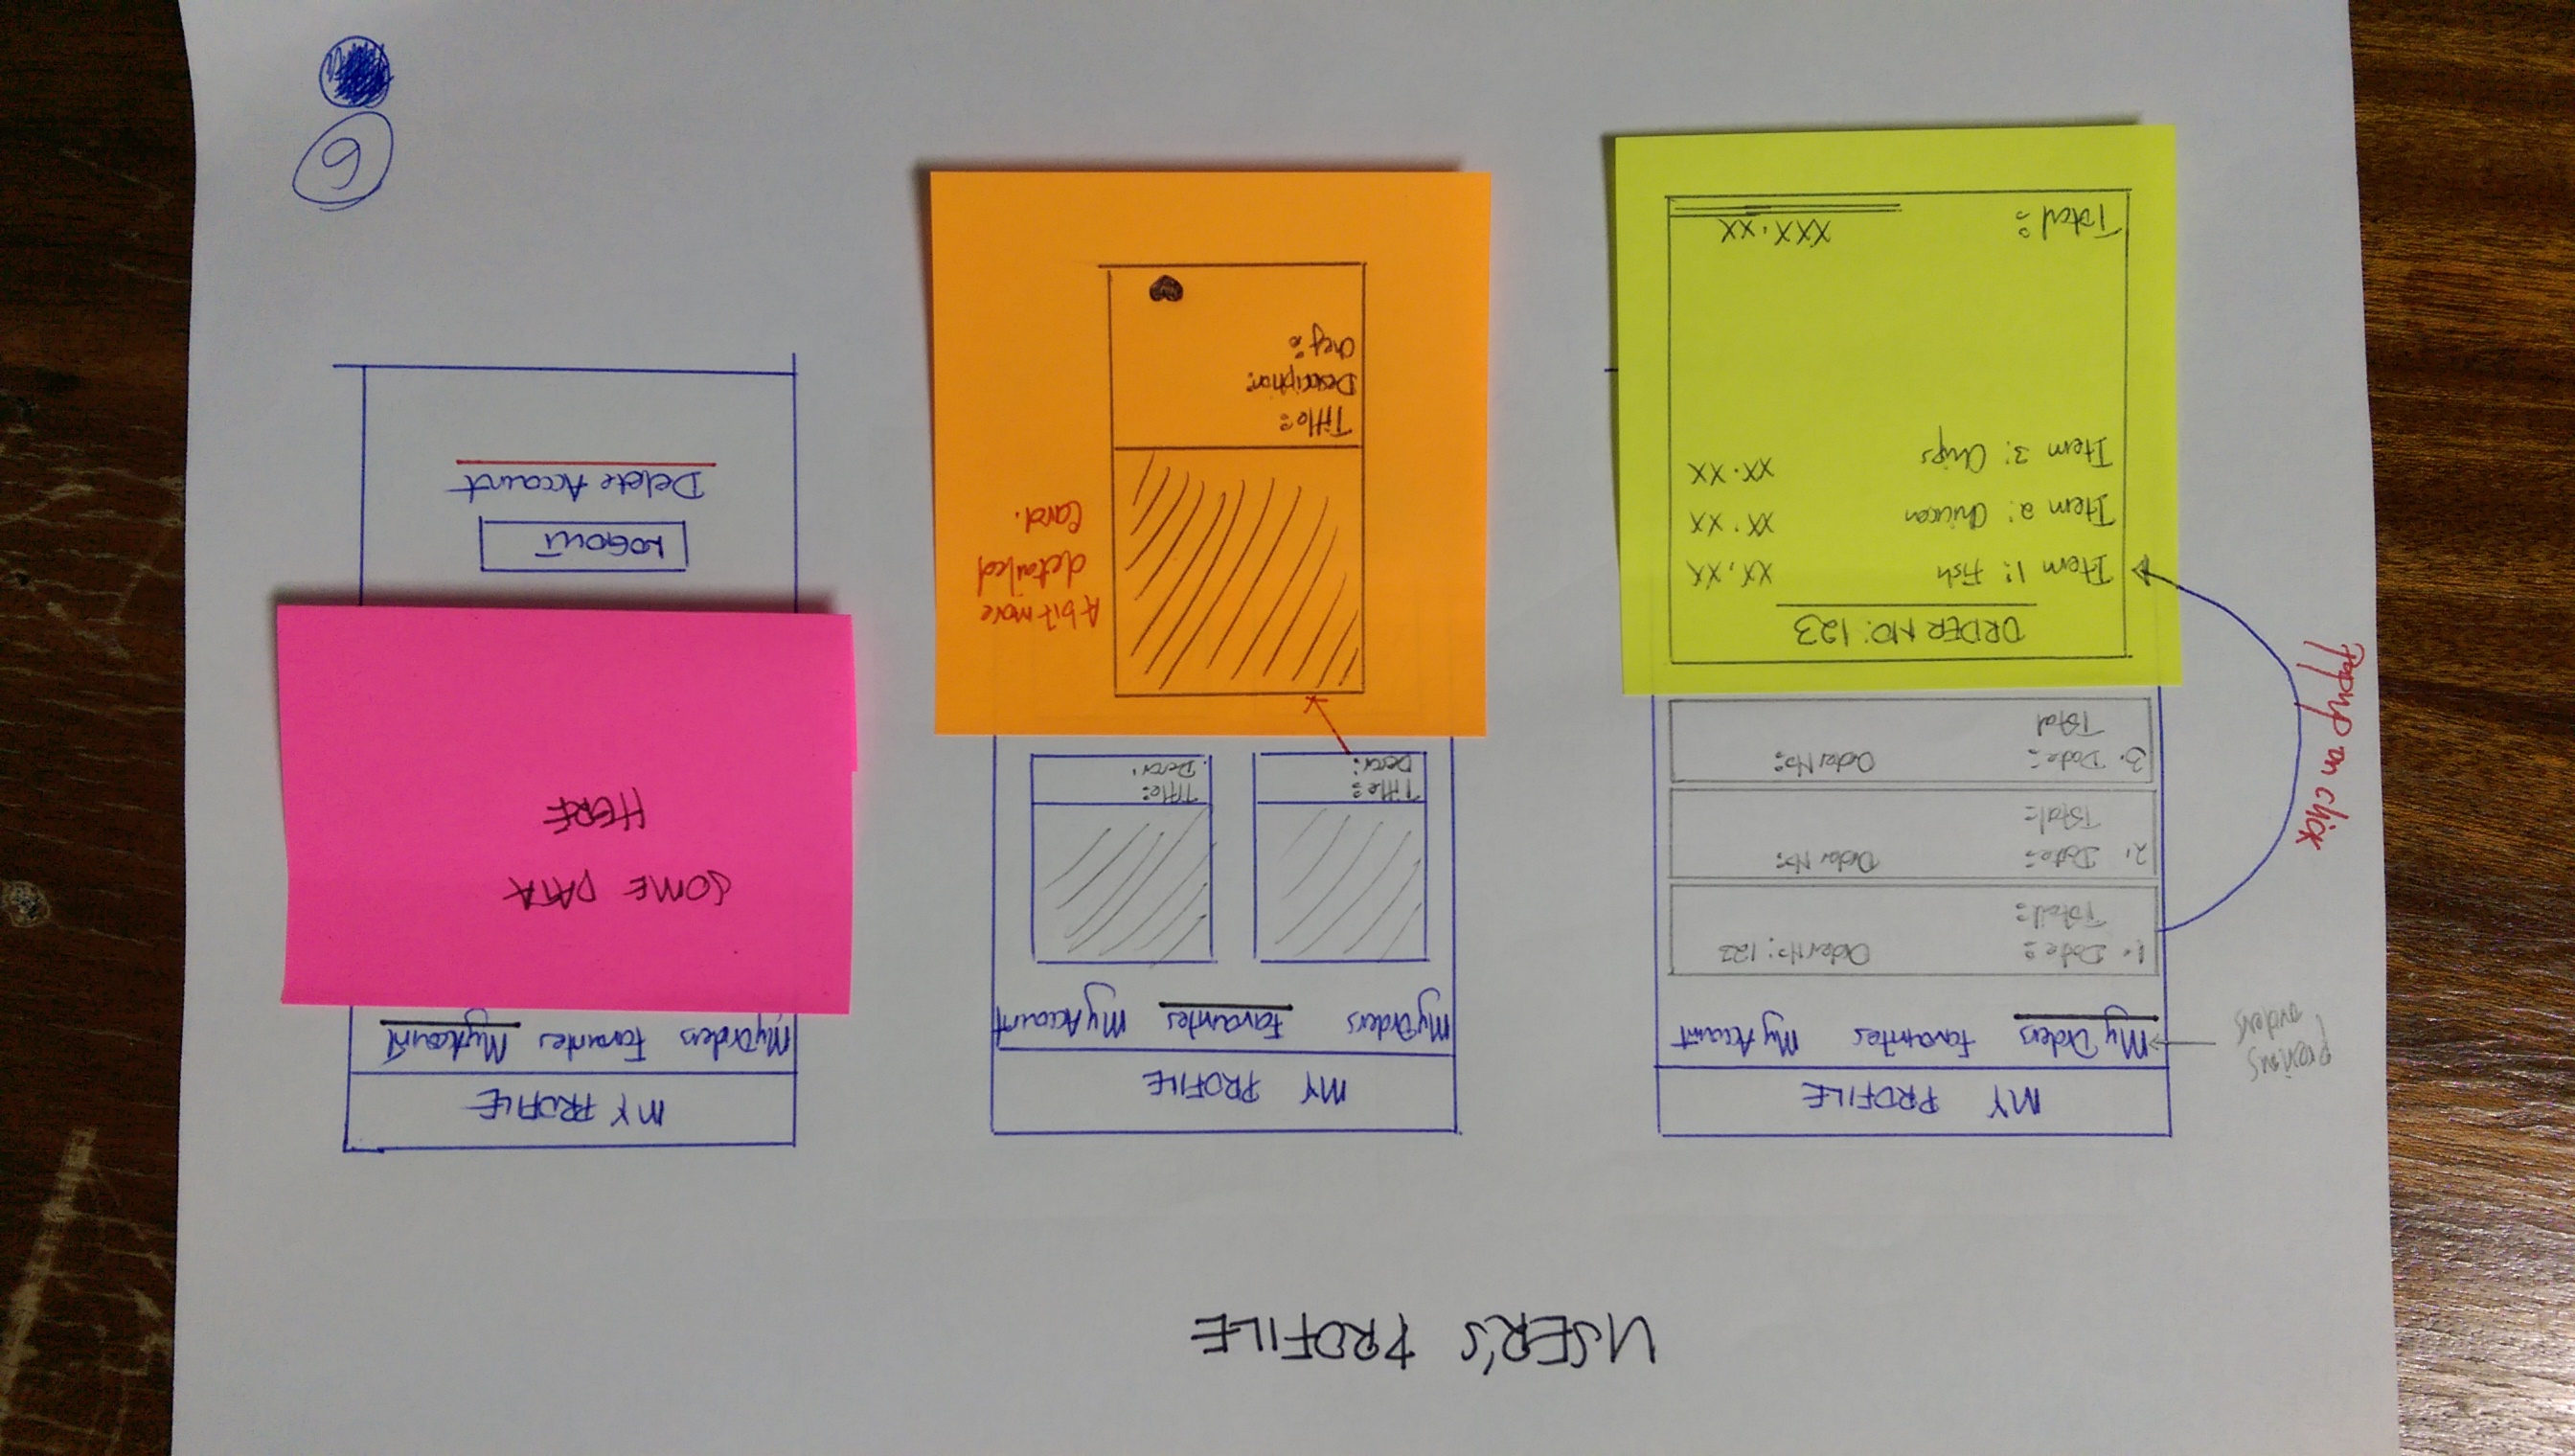 USER'S PROFILE
previous
orders
MY PROFILE
My Orders Favourites My Account
1. Date: Order No: 123
Total:
2. Date: Order No:
Total:
3. Date: Order No:
Total
Popup on click
ORDER NO: 123
Item 1: Fish XX.XX
Item 2: Chicken XX.XX
Item 3: Chips XX.XX
Total: XXX.XX
MY PROFILE
My Orders Favourites My Account
Title:
Descr:
Title:
Descr.
A bit more
detailed
Card.
Title:
Description:
Chef:
MY PROFILE
My Orders Favourites My Account
SOME DATA
HERE
LOGOUT
Delete Account
6